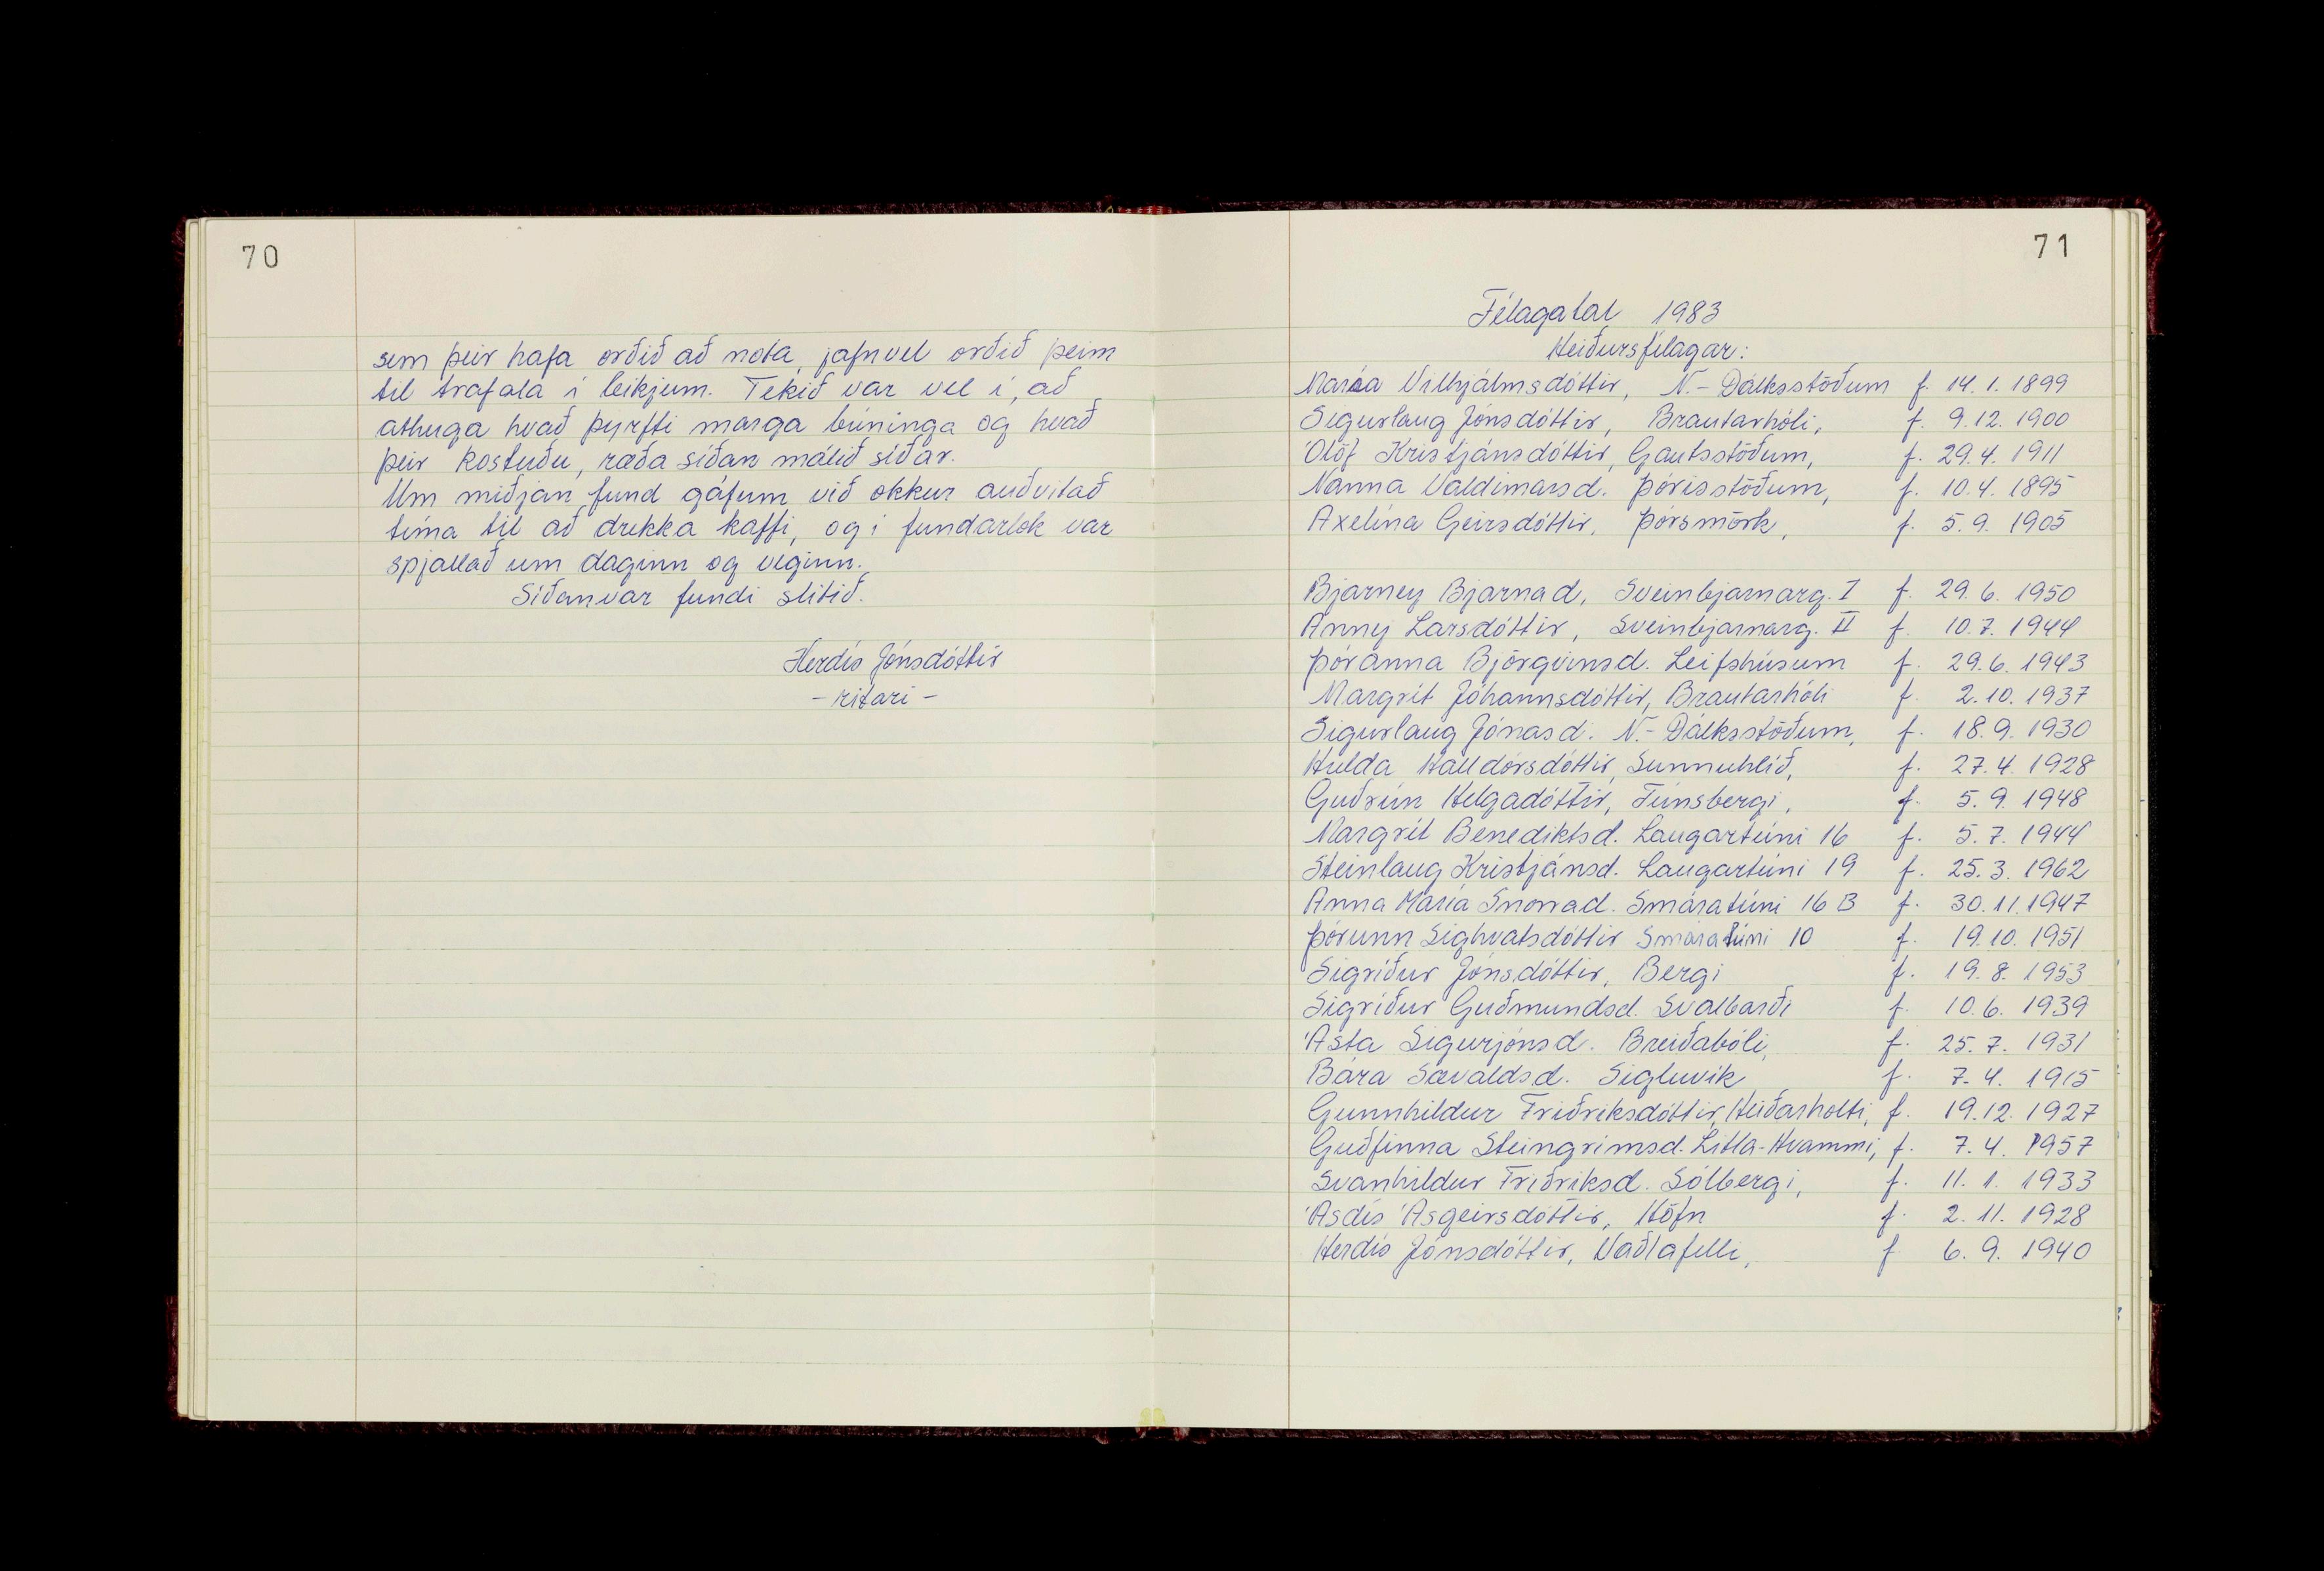 70
sem þeir hafa orðið að nota, jafnvel orðið þeim
til trafala í leikjum. Tekið var vel í, að
athuga hvað þyrfti marga búninga og hvað
þeir kostuðu, ræða síðan málið síðar.
Um miðjan fund gáfum við okkur auðvitað
tíma til að drekka kaffi, og í fundarlok var
spjallað um daginn og veginn.
Síðan var fundi slitið.
Herdís Jónsdóttir
- ritari -
71
Félagatal 1983
Heiðursfélagar:
María Vilhjálmsdóttir, N.- Dálksstöðum f. 14. 1. 1899
Sigurlaug Jónsdóttir, Brautarhóli, f. 9. 12. 1900
Ólöf Kristjánsdóttir, Gautsstöðum, f. 29. 4. 1911
Nanna Valdimarsd. Þórisstöðum, f. 10. 4. 1895
Axelína Geirsdóttir, Þórsmörk, f. 5. 9. 1905
Bjarney Bjarnad, Sveinbjarnarg. I f. 29. 6. 1950
Anny Larsdóttir, Sveinbjarnarg. II f. 10. 7. 1944
Þóranna Björgvinsd. Leifshúsum f. 29. 6. 1943
Margrét Jóhannsdóttir, Brautarhóli f. 2. 10. 1937
Sigurlaug Jónasd. N.- Dálksstöðum, f. 18. 9. 1930
Hulda Halldórsdóttir, Sunnuhlíð, f. 27. 4. 1928
Guðrún Helgadóttir, Túnsbergi, f. 5. 9. 1948
Margrét Benediktsd. Laugartúni 16 f. 5. 7. 1944
Steinlaug Kristjánsd. Laugartúni 19 f. 25. 3. 1962
Anna María Snorrad. Smáratúni 16 B f. 30. 11. 1947
Þórunn Sighvatsdóttir Smáratúni 10 f. 19. 10. 1951
Sigríður Jónsdóttir, Bergi f. 19. 8. 1953
Sigríður Guðmundsd. Svalbarði f. 10. 6. 1939
Ásta Sigurjónsd. Breiðabóli, f. 25. 7. 1931
Bára Sævaldsd. Sigluvík f. 7. 4. 1915
Gunnhildur Friðriksdóttir, Heiðarholti, f. 19. 12. 1927
Guðfinna Steingrímsd. Litla-Hvammi, f. 7. 4. 1957
Svanhildur Friðriksd. Sólbergi, f. 11. 1. 1933
Ásdís Ásgeirsdóttir, Höfn f. 2. 11. 1928
Herdís Jónsdóttir, Vaðlafelli, f 6. 9. 1940